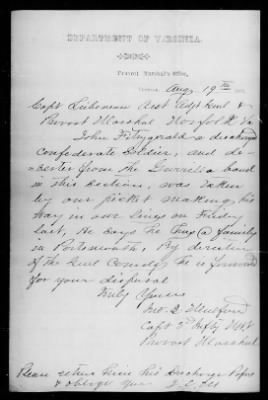 DEPARTMENT OF VIRGINIA.
Provost Marshal's Office,
Aug. 19th
Capt Asst Adjt Genl &
Provost Marshal Norfolk Va
John Fitzgerald a discharged
Confederate Soldier, and de-
-serter from the Guerrilla band
in this section, was taken
by our picket making his
way in our lines on Friday
last, He says he has (a family
in Portsmouth, By direction
of the Genl Comdg, he is forward
for your disposal
Truly Yours
Capt &
Provost Marshal
Please return him his Discharge Papers
& oblige Yrs